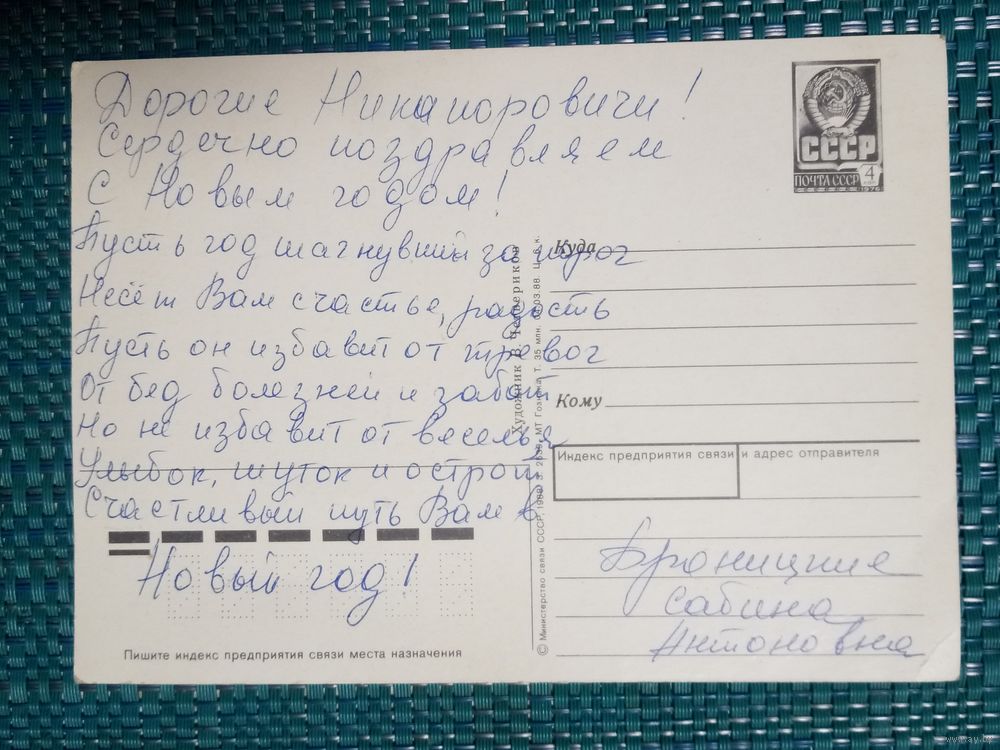 Дорогие Никапоровичи!
Сердечно поздравляем
С Новым годом!
Пусть год шагнувший за порог
Несёт Вам счастье, радость
Пусть он избавит от тревог
От бед болезней и забот
Но не избавит от веселья
Улыбок, шуток и острот
Счастливый путь Вам в
Новый год!
Пишите индекс предприятия связи места назначения
Художник В. Четвериков
© Министерство связи СССР, 1988 З.
МТ Гознака. Т. 35 млн. 03.88. Ц. 5 к.
СССР
ПОЧТА СССР 4
1976
Куда
Кому
Индекс предприятия связи и адрес отправителя
Броницкие
Сабина
Антоновна